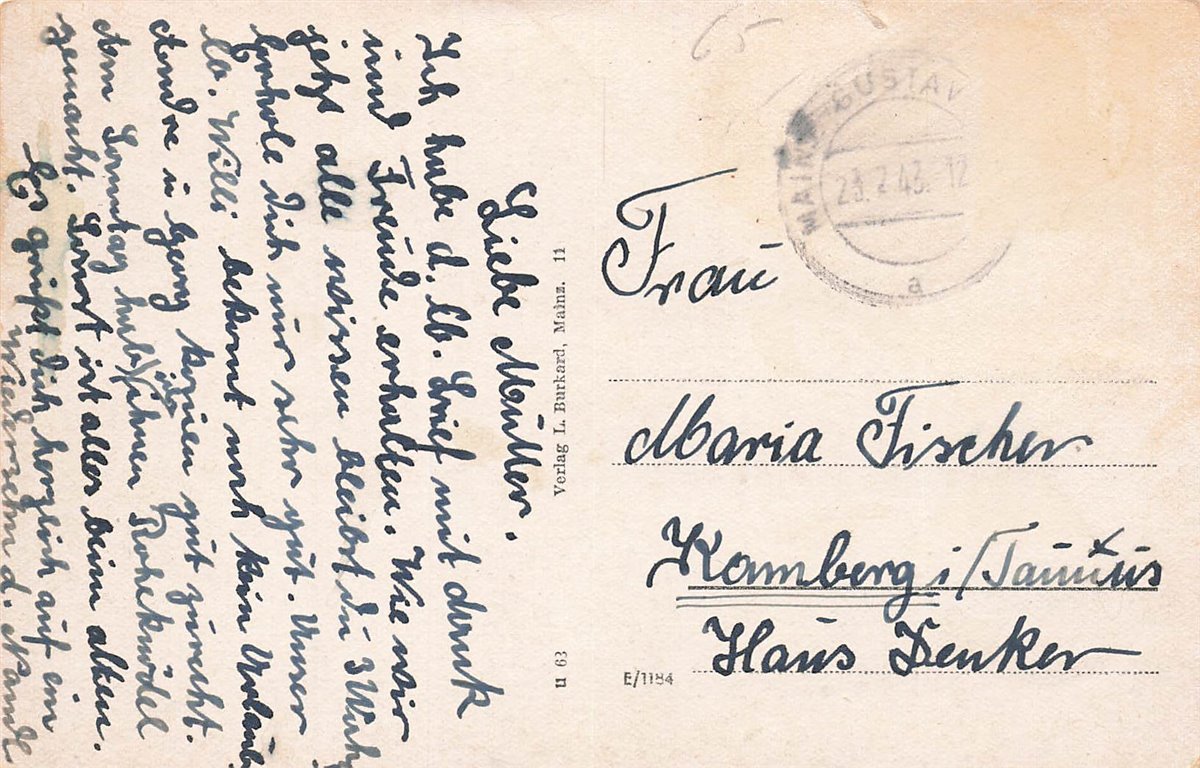 Liebe Mutter.
Ich habe d. lb. Brief mit dank
und Freude erhalten. Wie wir
jetzt alle wissen bleibst du 3 Woch
Erhole dich nur sehr gut. Unser
lb. Willi bekomt noch kein Urlaub
Andre u Georg komen gut zurecht.
Am Sonntag hab ich ihnen Roheknödel
gemacht. Sonst ist alles beim alten.
Es grüßt dich herzlich auf ein
Wiedersehn d.
Verlag L. Burkard, Mainz. 11
u 63
65
MAINZ-GUSTAV
23.2.43.12
a
Frau
Maria Fischer
Kamberg i/Taunus
Haus Denker
E/1184